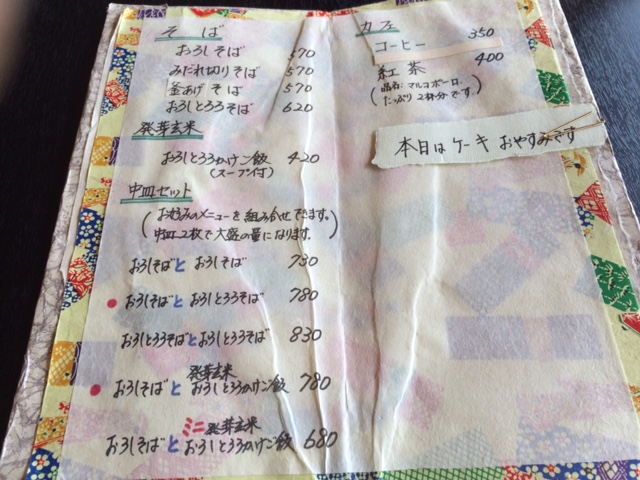 そば
おろしそば 570
みだれ切りそば 570
釜あげそば 570
おろしとろろそば 620
発芽玄米
おろしとろろかけご飯 420
(スープ付)
中皿セット
(お好みのメニューを組み合せできます。
中皿2枚で大盛の量になります。)
おろしそばと おろしそば 730
おろしそばと おろしとろろそば 780
おろしとろろそばとおろしとろろそば 830
発芽玄米
おろしそばと おろしとろろかけご飯 780
ミニ発芽玄米
おろしそばと おろしとろろかけご飯 680
カフェ
コーヒー 350
紅茶 400
(品名:マルコポーロ。
たっぷり2杯分です。)
本日はケーキ おやすみです